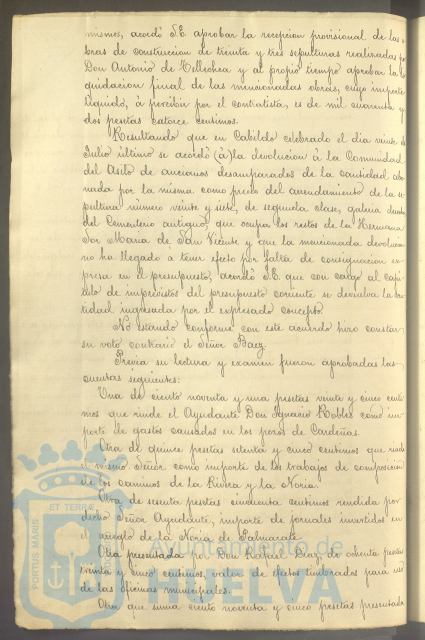 mismos, acordó S.E. aprobar la recepcion provisional de las o
bras de construccion de treinta y tres sepulturas realizadas por
Don Antonio de Tellechea y al propio tiempo aprobar la li
quidacion final de las mencionadas obras, cuyo importe
líquido, á percibir por el contratista, es de mil cuarenta y
dos pesetas catorce centimos.
Resultando que en Cabildo celebrado el dia veinte de
Julio último se acordó (a) la devolucion á la Comunidad
del Asilo de ancianos desamparados de la cantidad abo
nada por la misma como precio del arrendamiento de la se
pultura número veinte y siete, de segunda clase, galeria derecha
del Cementerio antiguo, que ocupa los restos de la Hermana
Sor Maria de San Vicente y que la mencionada devolucion
no ha llegado a tener efecto por falta de consignacion ex
presa en el presupuesto, acordó S.E. que con cargo al capi
tulo de imprevistos del presupuesto corriente se devuelva la can
tidad ingresada por el expresado concepto.
No estando conforme con este acuerdo hizo constar
su voto contrario el Señor Baez.
Prévia su lectura y examen fueron aprobadas las
cuentas siguientes:
Una de ciento noventa y una pesetas veinte y cinco centi
mos que rinde el Ayudante Don Ignacio Robles como im
porte de gastos causados en los pozos de Cardeñas.
Otra de quince pesetas setenta y cinco centimos que rinde
el mismo Señor como importe de los trabajos de composicion
de los caminos de la Rivera y la Noria.
Otra de sesenta pesetas cincuenta centimos rendida por
dicho Señor Ayudante, importe de jornales invertidos en
el arreglo de la Noria de Palmarate.
Otra presentada Don Rafael Diaz, de ochenta pesetas
treinta y cinco centimos, valor de efectos timbrados para uso
de las oficinas municipales.
Otra que suma ciento noventa y cinco pesetas presentada
PORTUS MARIS ET TERRÆ
Ayuntamiento de
HUELVA